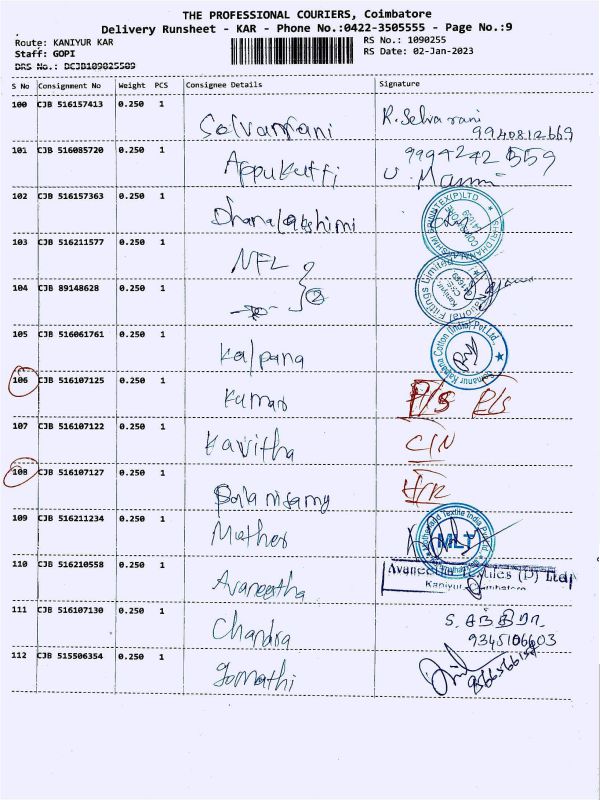 THE PROFESSIONAL COURIERS, Coimbatore
Delivery Runsheet - KAR - Phone No.:0422-3505555 - Page No.:9
Route: KANIYUR KAR
RS No.: 1090255
Staff: GOPI
RS Date: 02-Jan-2023
DRS No.: DCJB109025509
S No Consignment No Weight PCS Consignee Details Signature
100 CJB 516157413 0.250 1 Selvarani R. Selvarani
9940812669
101 CJB 516085720 0.250 1 Appukutti 9994242559
U. Mani
102 CJB 516157363 0.250 1 Dhanalakshimi
103 CJB 516211577 0.250 1 NFL
104 CJB 89148628 0.250 1 2
105 CJB 516061761 0.250 1 Kalpana Kalpana Cotton (India) Pvt Ltd.,
106 CJB 516107125 0.250 1 Kumar P/S P/S
107 CJB 516107122 0.250 1 Kavitha C/N
108 CJB 516107127 0.250 1 Palanisamy
109 CJB 516211234 0.250 1 Mother MLT
110 CJB 516210558 0.250 1 Avaneetha Avaneetha Textiles (P) Ltd
Kaniyur, Coimbatore
111 CJB 516107130 0.250 1 Chandra S. சந்திரா
9345106603
112 CJB 515506354 0.250 1 Gomathi